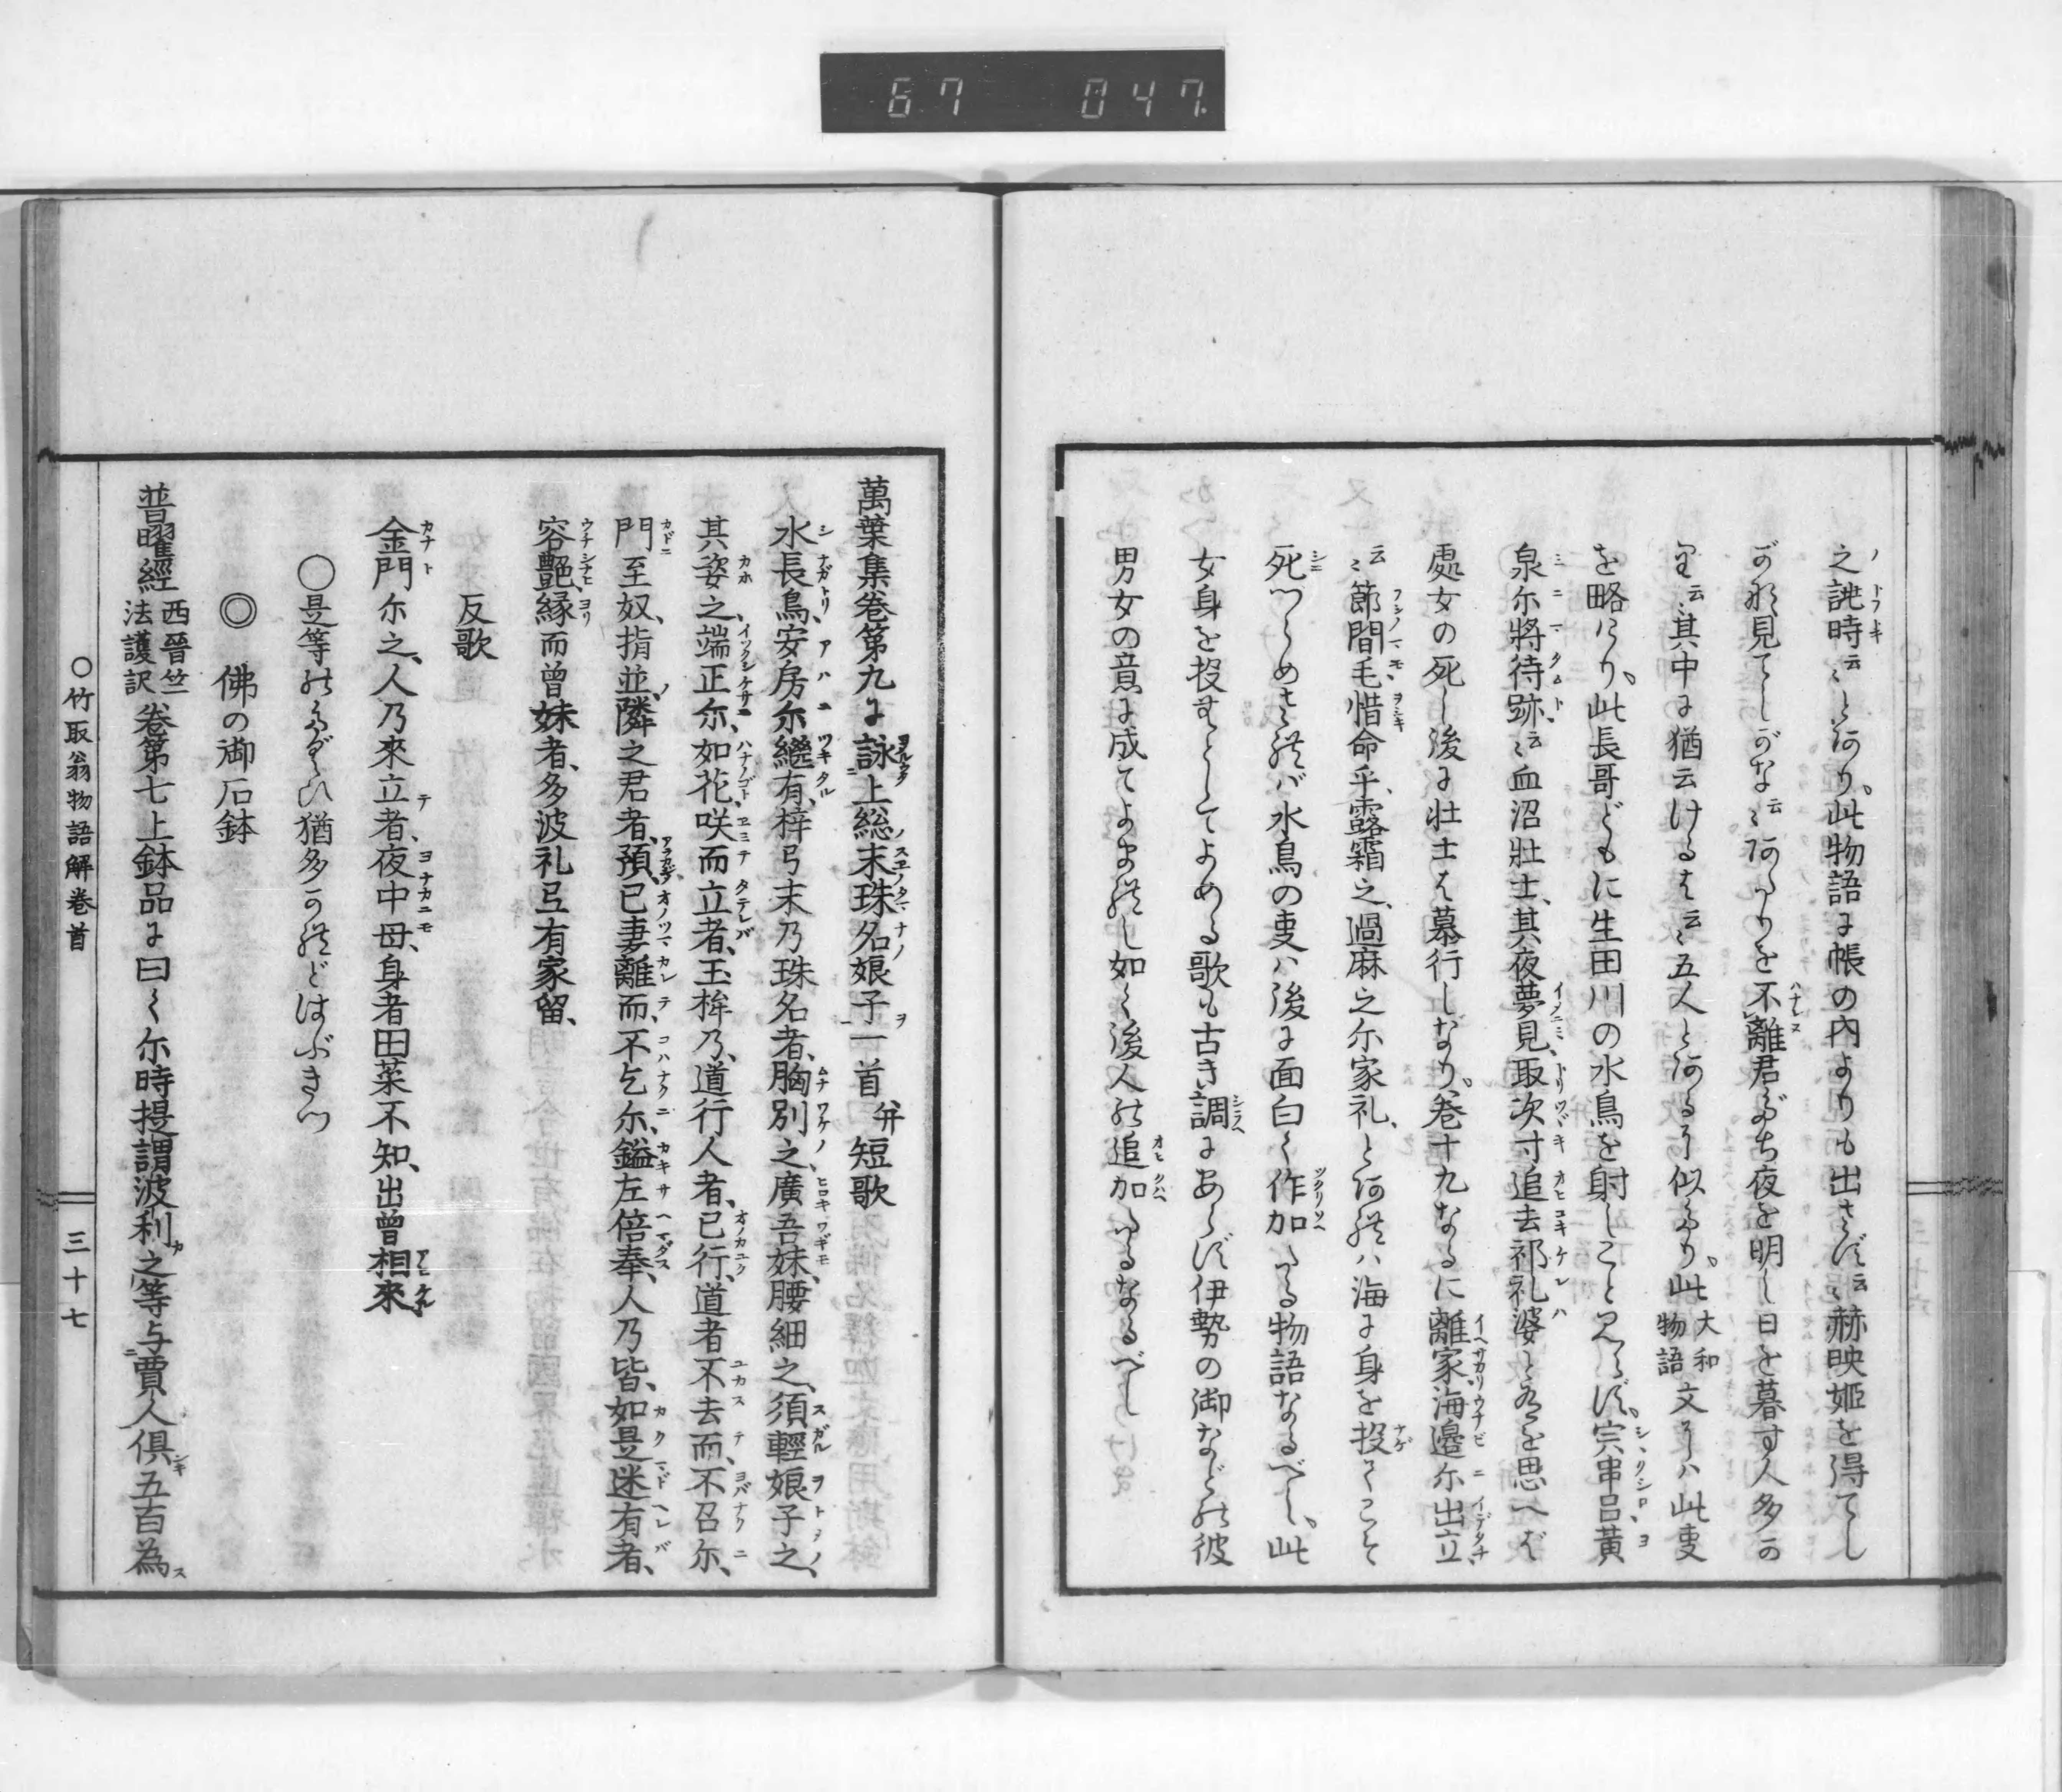 67 047
之誂時云〻と阿り、此物語に帳の内よりも出さず云〻赫映姫を得てし
がな見てしがな云〻阿たりを不離君だち夜を明し日を暮す人多か
り云〻其中に猶云けるは云〻五人と阿るに似たり、此大和物語文には此事
を略けり、此長哥どもに生田川の水鳥を射しこと見えず、宍串呂黄
泉尓將待跡〻云血沼壯士、其夜夢見、取次寸追去祁礼婆と有を思へば
處女の死し後に壮士は慕行しなり、巻十九なるに離家海邊尓出立
云〻節間毛惜命乎、露霜之、過麻之尓家礼、と阿れハ海に身を投てこそ
死つらめされバ水鳥の事ハ後に面白く作加たる物語なるべし、此
女身を投むとしてよめる歌も古き調にあらず伊勢の御などの彼
男女の意に成てよまれし如く後人の追加たるなるべし
萬葉集巻第九に詠上総末珠名娘子一首并短歌
水長鳥、安房尓繼有、梓弓末乃珠名者、胸別之、廣吾妹、腰細之、須輕娘子之、
其姿之、端正尓、如花、咲而立者、玉桙乃、道行人者、己行、道者不去而、不召尓、
門至奴、指並、隣之君者、預、己妻離而、不乞尓、鎰左倍奉、人乃皆、如是迷有者、
容艶、縁而曾妹者、多波礼弖有家留、
反歌
金門尓之、人乃來立者、夜中母、身者田菜不知、出曾相來、
〇是等のたぐひ猶多かれどはぶきつ
◎ 佛の御石鉢
普曜經西晉竺法護訳巻第七上鉢品に曰く尓時提謂波利之等与賈人俱五百為
〇竹取翁物語解巻首 三十七